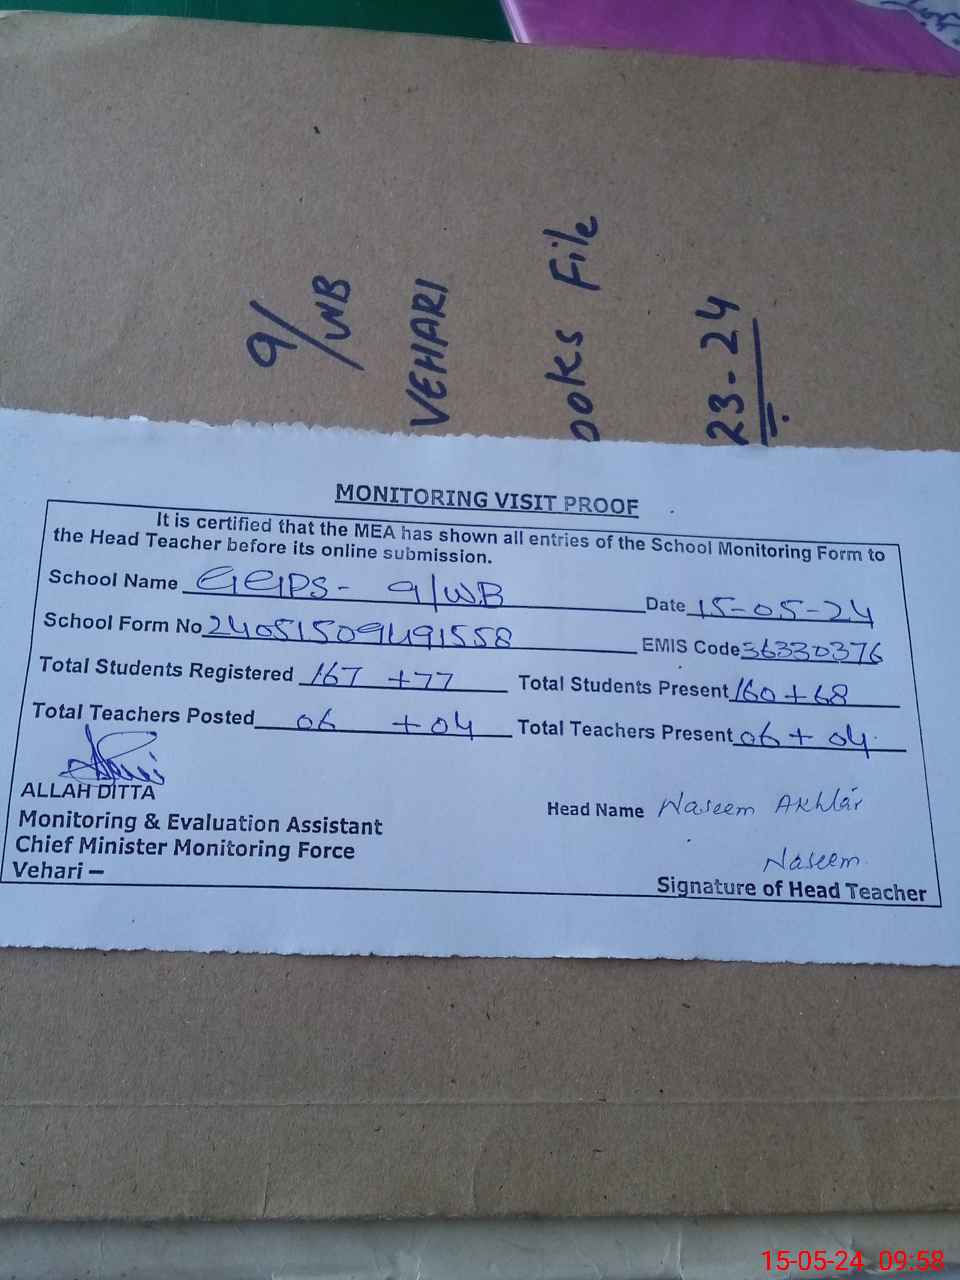 9/WB
VEHARI
ooks File
23-24
MONITORING VISIT PROOF
It is certified that the MEA has shown all entries of the School Monitoring Form to
the Head Teacher before its online submission.
School Name GGPS- 9/WB Date 15-05-24
School Form No 240515091491558 EMIS Code 36330376
Total Students Registered 167 +77 Total Students Present 160+68
Total Teachers Posted 06 +04 Total Teachers Present 06+ 04
ALLAH DITTA
Monitoring & Evaluation Assistant
Chief Minister Monitoring Force
Vehari –
Head Name Naseem Akhtar
Naseem
Signature of Head Teacher
15-05-24 09:58